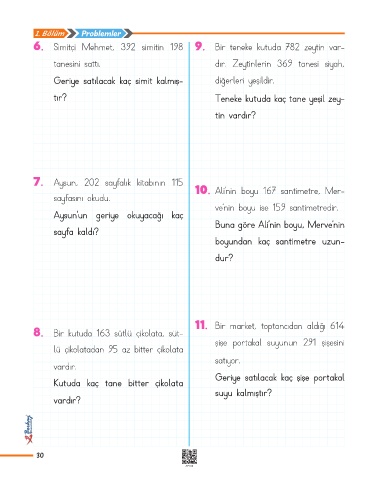 1. Bölüm
Problemler
6. Simitçi Mehmet, 392 simitin 198
tanesini sattı.
Geriye satılacak kaç simit kalmış-
tır?
7. Aysun, 202 sayfalık kitabının 115
sayfasını okudu.
Aysun'un geriye okuyacağı kaç
sayfa kaldı?
8. Bir kutuda 163 sütlü çikolata, süt-
lü çikolatadan 95 az bitter çikolata
vardır.
Kutuda kaç tane bitter çikolata
vardır?
9. Bir teneke kutuda 782 zeytin var-
dır. Zeytinlerin 369 tanesi siyah,
diğerleri yeşildir.
Teneke kutuda kaç tane yeşil zey-
tin vardır?
10. Ali'nin boyu 167 santimetre, Mer-
ve'nin boyu ise 159 santimetredir.
Buna göre Ali'nin boyu, Merve'nin
boyundan kaç santimetre uzun-
dur?
11. Bir market, toptancıdan aldığı 614
şişe portakal suyunun 291 şişesini
satıyor.
Geriye satılacak kaç şişe portakal
suyu kalmıştır?
30